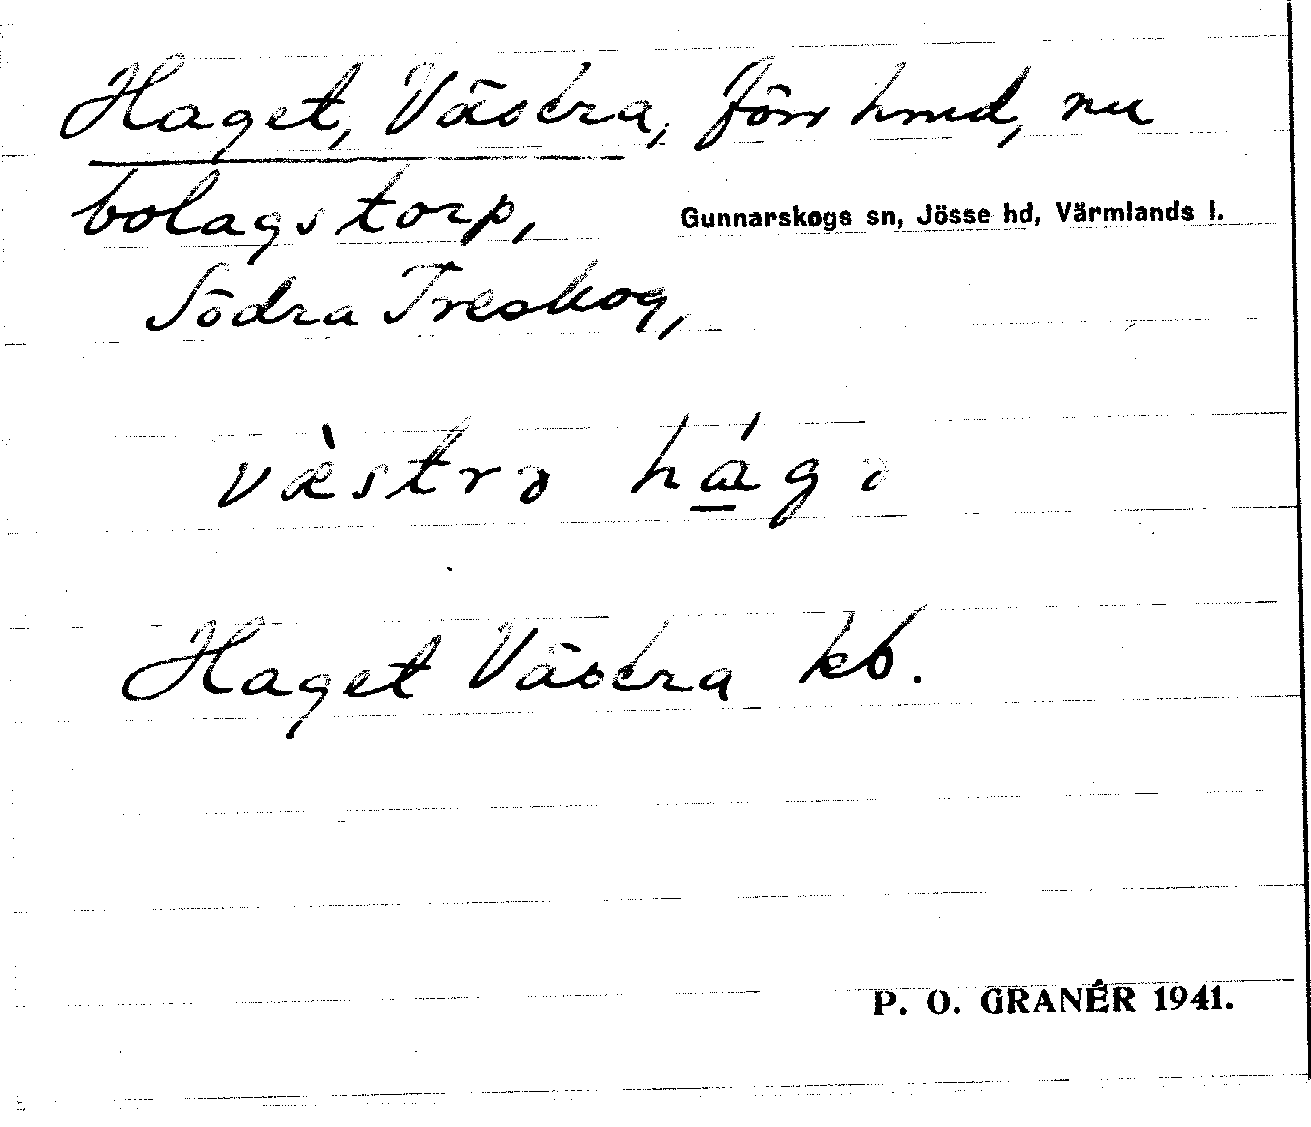 Haget, Västra, förr hmd, nu
bolagstorp,
Gunnarskogs sn, Jösse hd, Värmlands l.
Södra Treskog,
væ̀strə há̱gə
Haget Västra kb.
P. O. GRANÉR 1941.